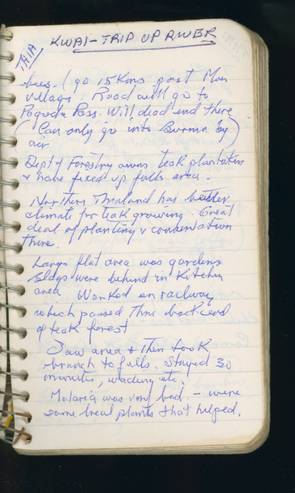 THAI
KWAI - TRIP UP RIVER
trees. (go 15 Kms past Mon
village) Road will go to
Pagoda Pass. Will dead end there
(Can only go into Burma by
air)
Dept of Forestry owns teak plantation
& have fixed up falls area.
Northern Thailand has better
climate for teak growing. Great
deal of planting & conservation
there.
Large flat area was gardens
Bldgs were behind in Kitchen
area. Worked on railway
which passed thru back end
of teak forest
Saw area & then took
branch to falls. Stayed 30
minutes, wading etc.
Malaria was very bad - were
some local plants that helped.